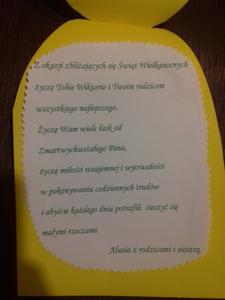 Z okazji zbliżających się Świąt Wielkanocnych
życzę Tobie Wiktorio i Twoim rodzicom
wszystkiego najlepszego.
Życzę Wam wiele łask od
Zmartwychwstałego Pana,
życzę miłości wzajemnej i wytrwałości
w pokonywaniu codziennych trudów
i abyście każdego dnia potrafili cieszyć się
małymi rzeczami.
Alusia z rodzicami i siostrą.